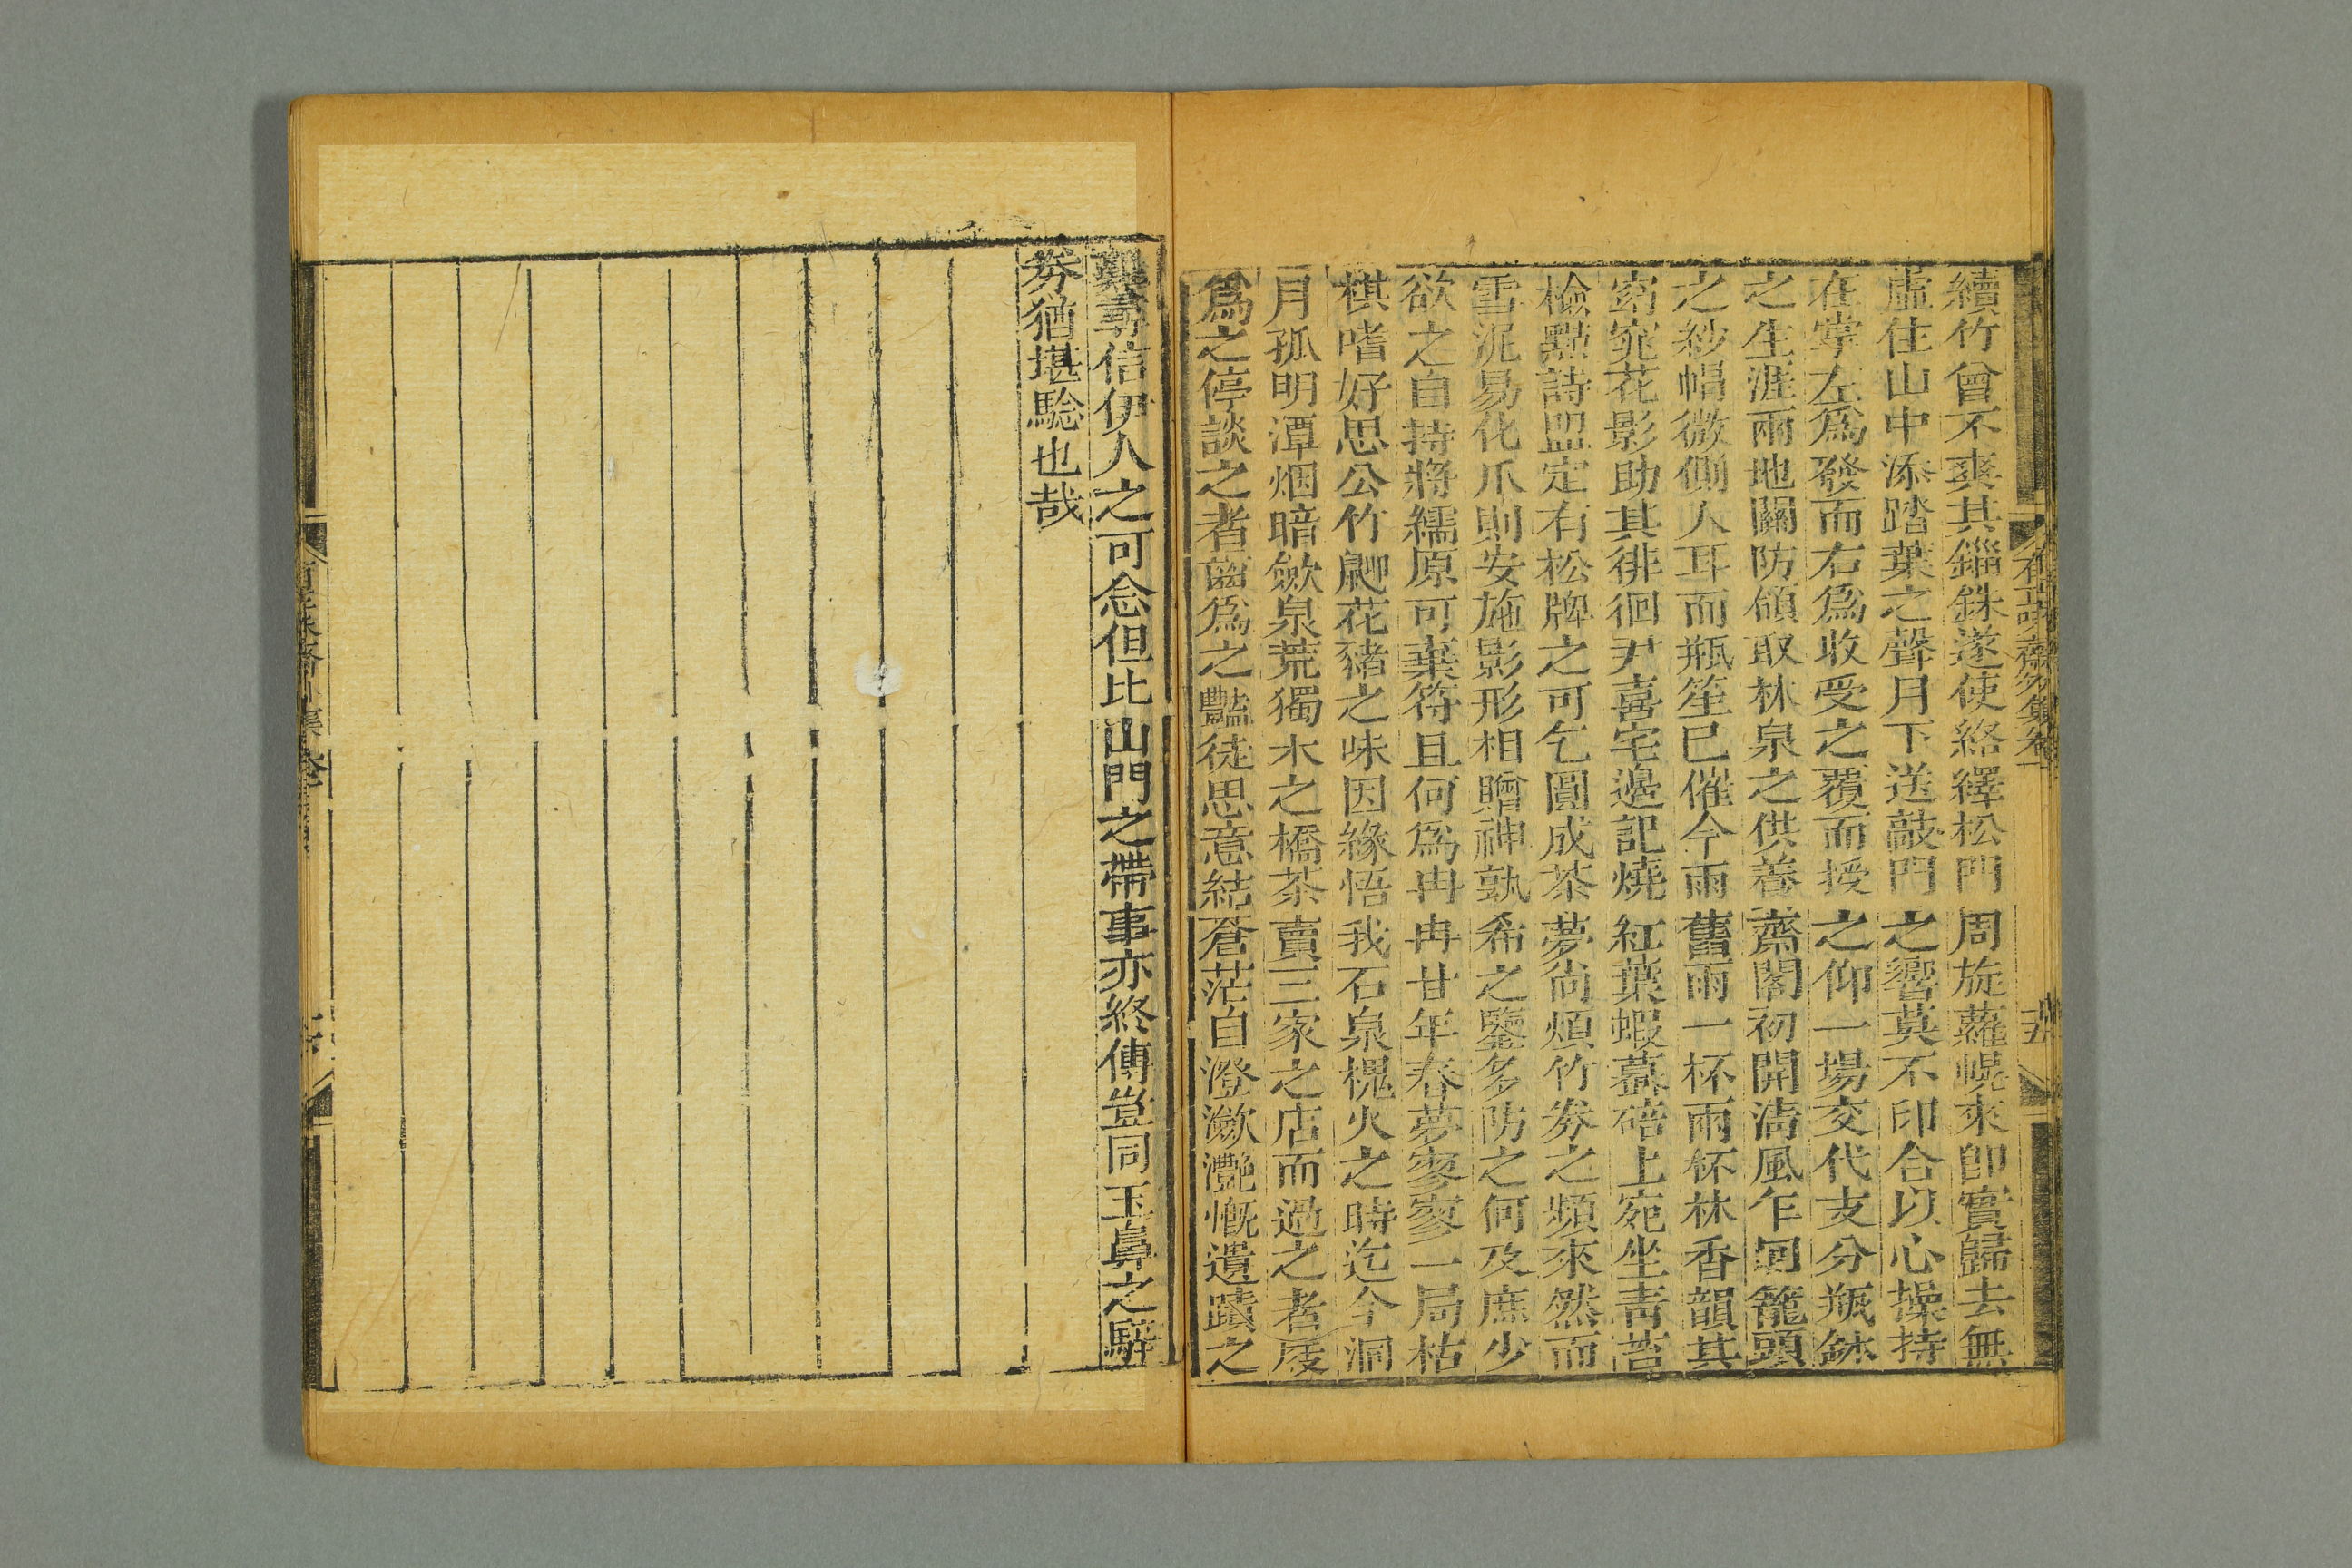 續竹曾不爽其錙銖遂使絡繹松門周旋蘿幌來卽實歸去無
虛住山中添踏葉之聲月下送敲門之響莫不印合以心操持
在掌左爲發而右爲收受之覆而授之仰一場交代支分瓶鉢
之生涯兩地關防領取林泉之供養齋閣初開淸風乍回籠頭
之紗帽微側人耳而瓶笙已催今雨舊雨一杯兩杯林香韻其
窈窕花影助其徘徊尹喜宅邊記燒紅葉蝦蟇碚上宛坐靑苔
檢點詩盟定有松牌之可乞圓成茶夢尙煩竹券之頻來然而
雪泥易化爪則安施影形相贈神孰希之鑒多防之何及庶少
欲之自持將繻原可棄符且何爲冉冉廿年春夢寥寥一局枯
棋嗜好思公竹䶉花豬之味因緣悟我石泉槐火之時迄今洞
月孤明潭烟暗歛泉荒獨木之橋茶賣三家之店而過之者屐
爲之停談之者齒爲之豔徒思意結蒼茫自澄瀲灔慨遺蹟之
難尋信伊人之可念但比山門之帶事亦終傳豈同玉鼻之騂
券猶堪驗也哉
有正味齋外集卷一
五